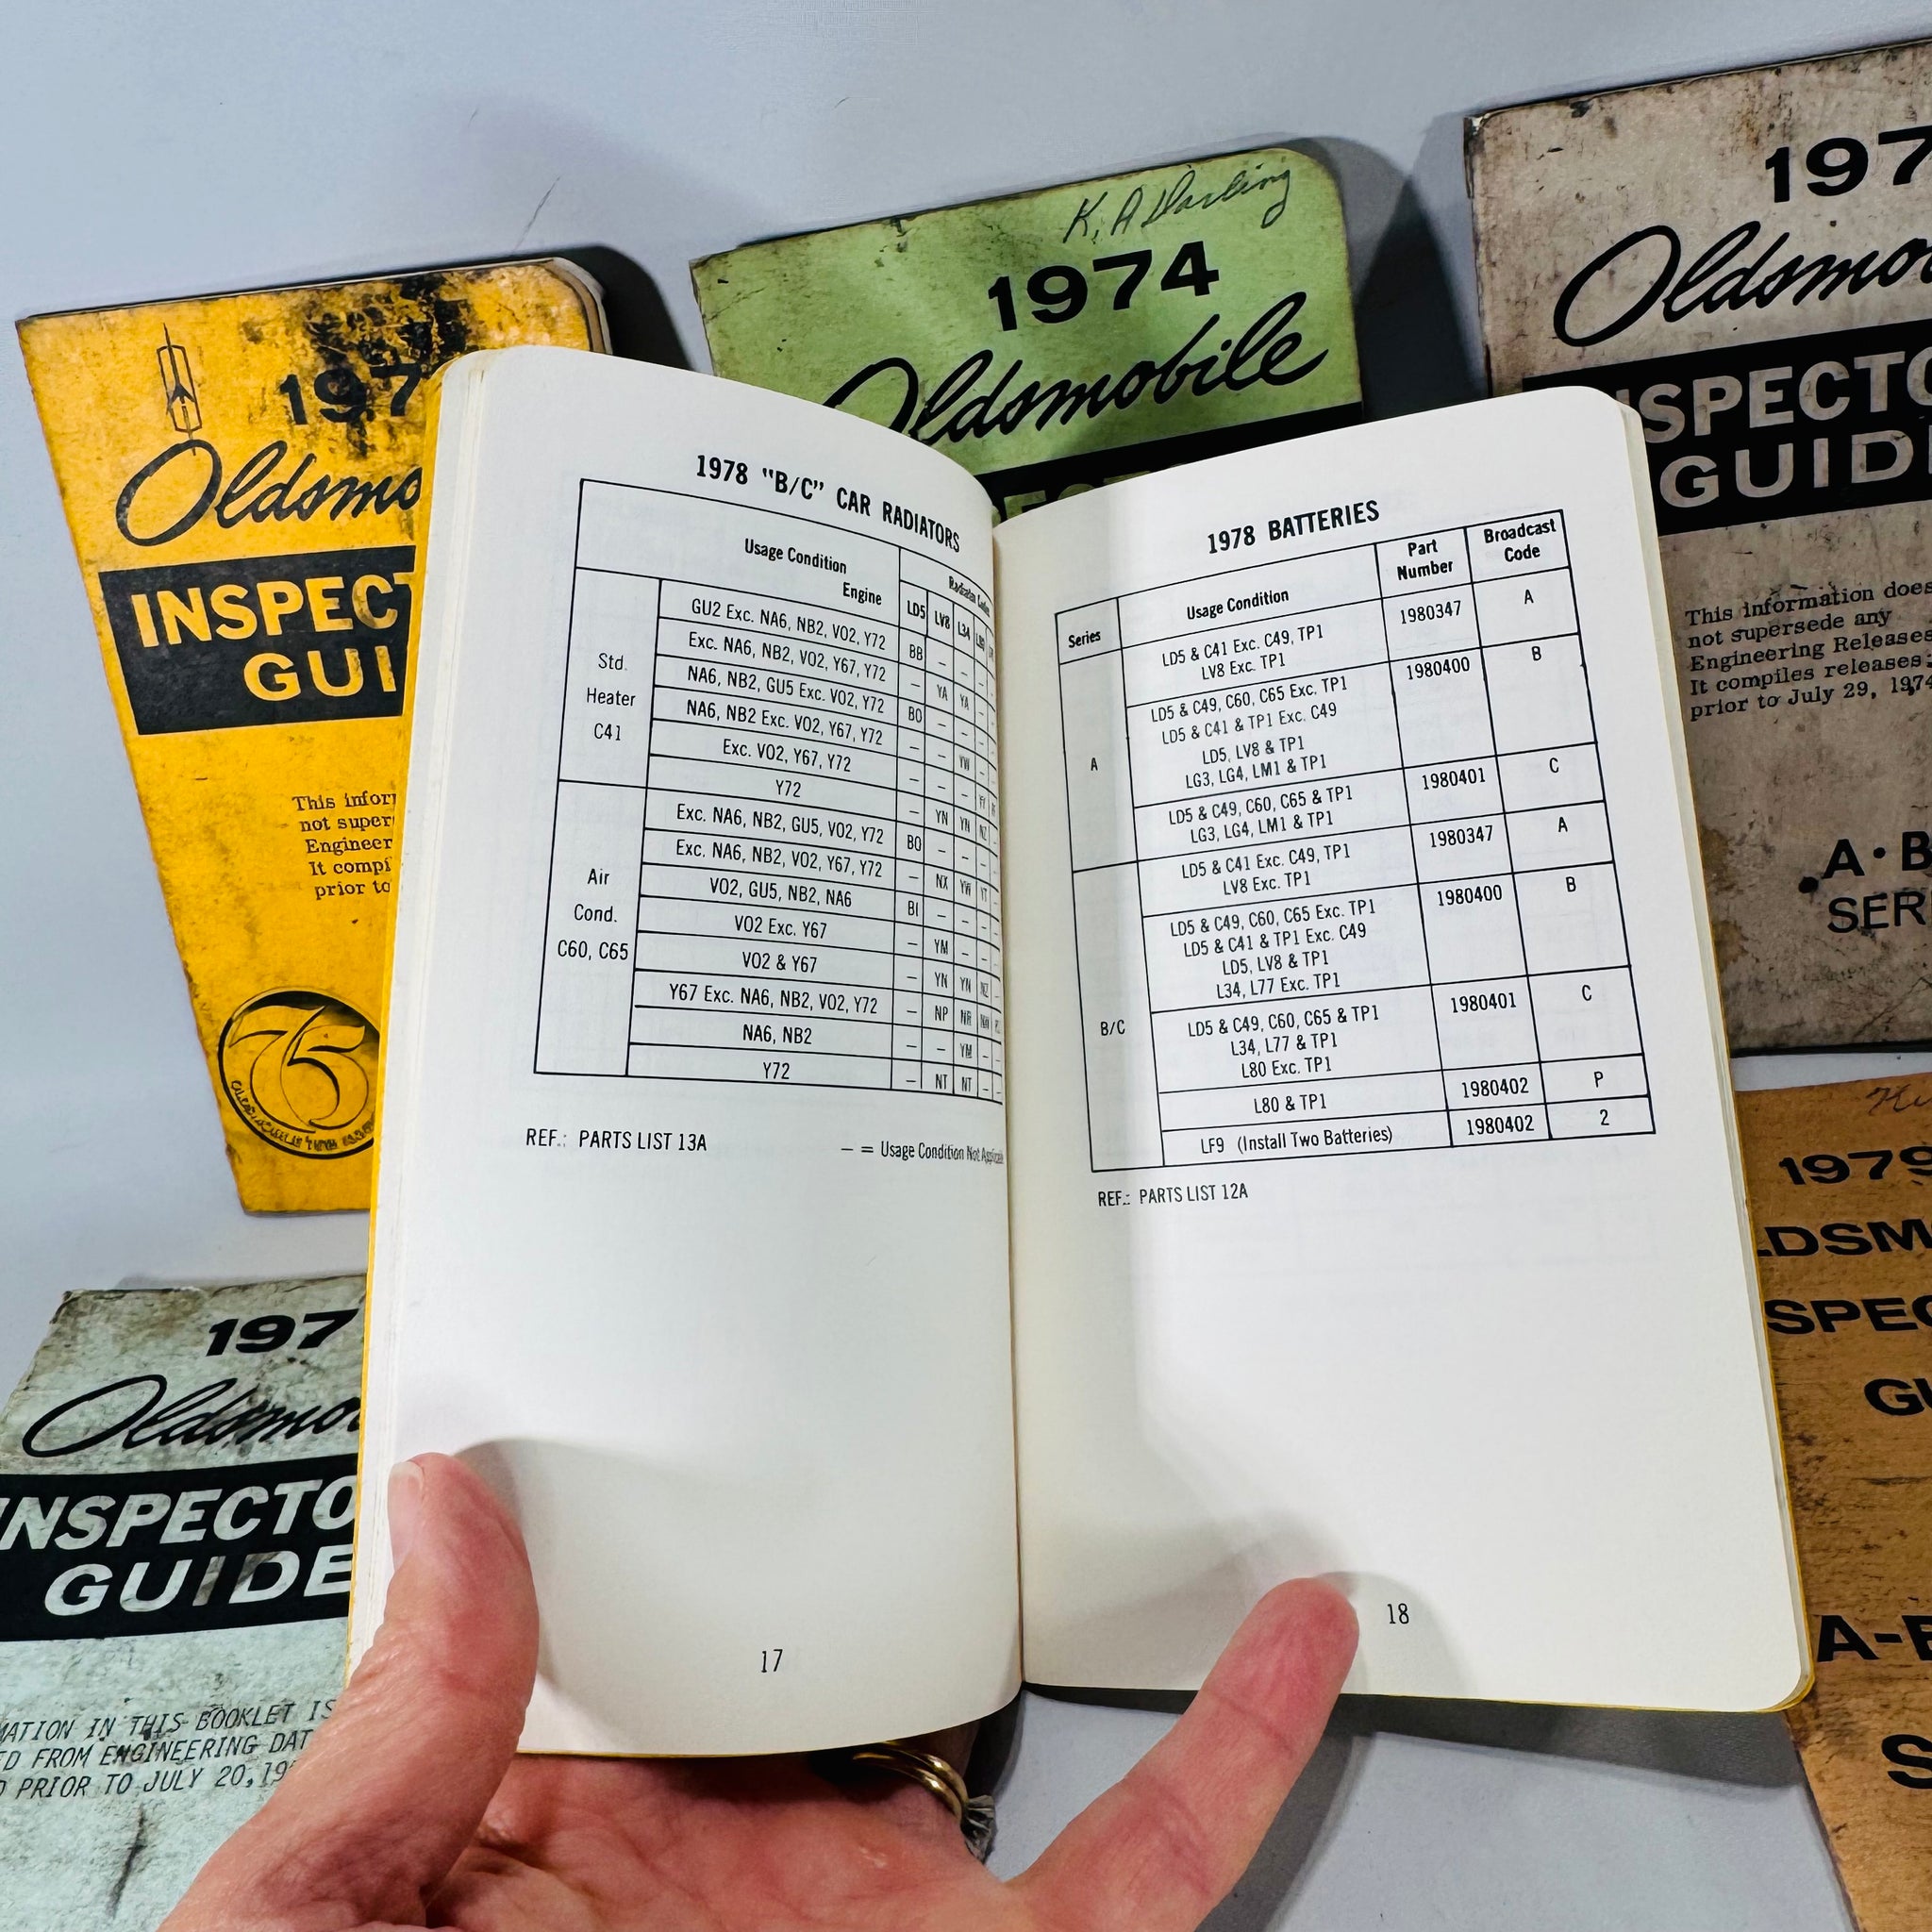 K. A Darling
1974
Oldsmobile
197
Oldsmo
INSPECTO
GUID
This information does
not supersede any
Engineering Releases
It compiles releases
prior to July 29, 1974
A·B
SER
197
Oldsmo
INSPECT
GUI
This infor
not super
Engineer
It compi
prior to
75
1978 "B/C" CAR RADIATORS
Usage Condition
Engine
LD5 LV8 L34
Std.
Heater
C41
GU2 Exc. NA6, NB2, VO2, Y72 BB – –
Exc. NA6, NB2, VO2, Y67, Y72 – YA YA –
NA6, NB2, GU5 Exc. VO2, Y72 BO – –
NA6, NB2 Exc. VO2, Y67, Y72 – – YW –
Exc. VO2, Y67, Y72 – – –
Y72 – YN YN NZ
Air
Cond.
C60, C65
Exc. NA6, NB2, GU5, VO2, Y72 BO – – –
Exc. NA6, NB2, VO2, Y67, Y72 – NX YW YT
VO2, GU5, NB2, NA6 BI – – –
VO2 Exc. Y67 – YM – –
VO2 & Y67 – YN YN NZ
Y67 Exc. NA6, NB2, VO2, Y72 – NP NR
NA6, NB2 – – YM –
Y72 – NT NT –
REF.: PARTS LIST 13A
– = Usage Condition Not Applicable
17
1978 BATTERIES
Series
Usage Condition
Part
Number
Broadcast
Code
A
LD5 & C41 Exc. C49, TP1 1980347 A
LV8 Exc. TP1
LD5 & C49, C60, C65 Exc. TP1 1980400 B
LD5 & C41 & TP1 Exc. C49
LD5, LV8 & TP1
LG3, LG4, LM1 & TP1
LD5 & C49, C60, C65 & TP1 1980401 C
LG3, LG4, LM1 & TP1
B/C
LD5 & C41 Exc. C49, TP1 1980347 A
LV8 Exc. TP1
LD5 & C49, C60, C65 Exc. TP1 1980400 B
LD5 & C41 & TP1 Exc. C49
LD5, LV8 & TP1
L34, L77 Exc. TP1
LD5 & C49, C60, C65 & TP1 1980401 C
L34, L77 & TP1
L80 Exc. TP1
L80 & TP1 1980402 P
LF9 (Install Two Batteries) 1980402 2
REF.: PARTS LIST 12A
18
197
Oldsmo
INSPECTO
GUIDE
MATION IN THIS BOOKLET IS
ED FROM ENGINEERING DAT
D PRIOR TO JULY 20, 19
1979
LDSM
SPEC
GU
A-B
S